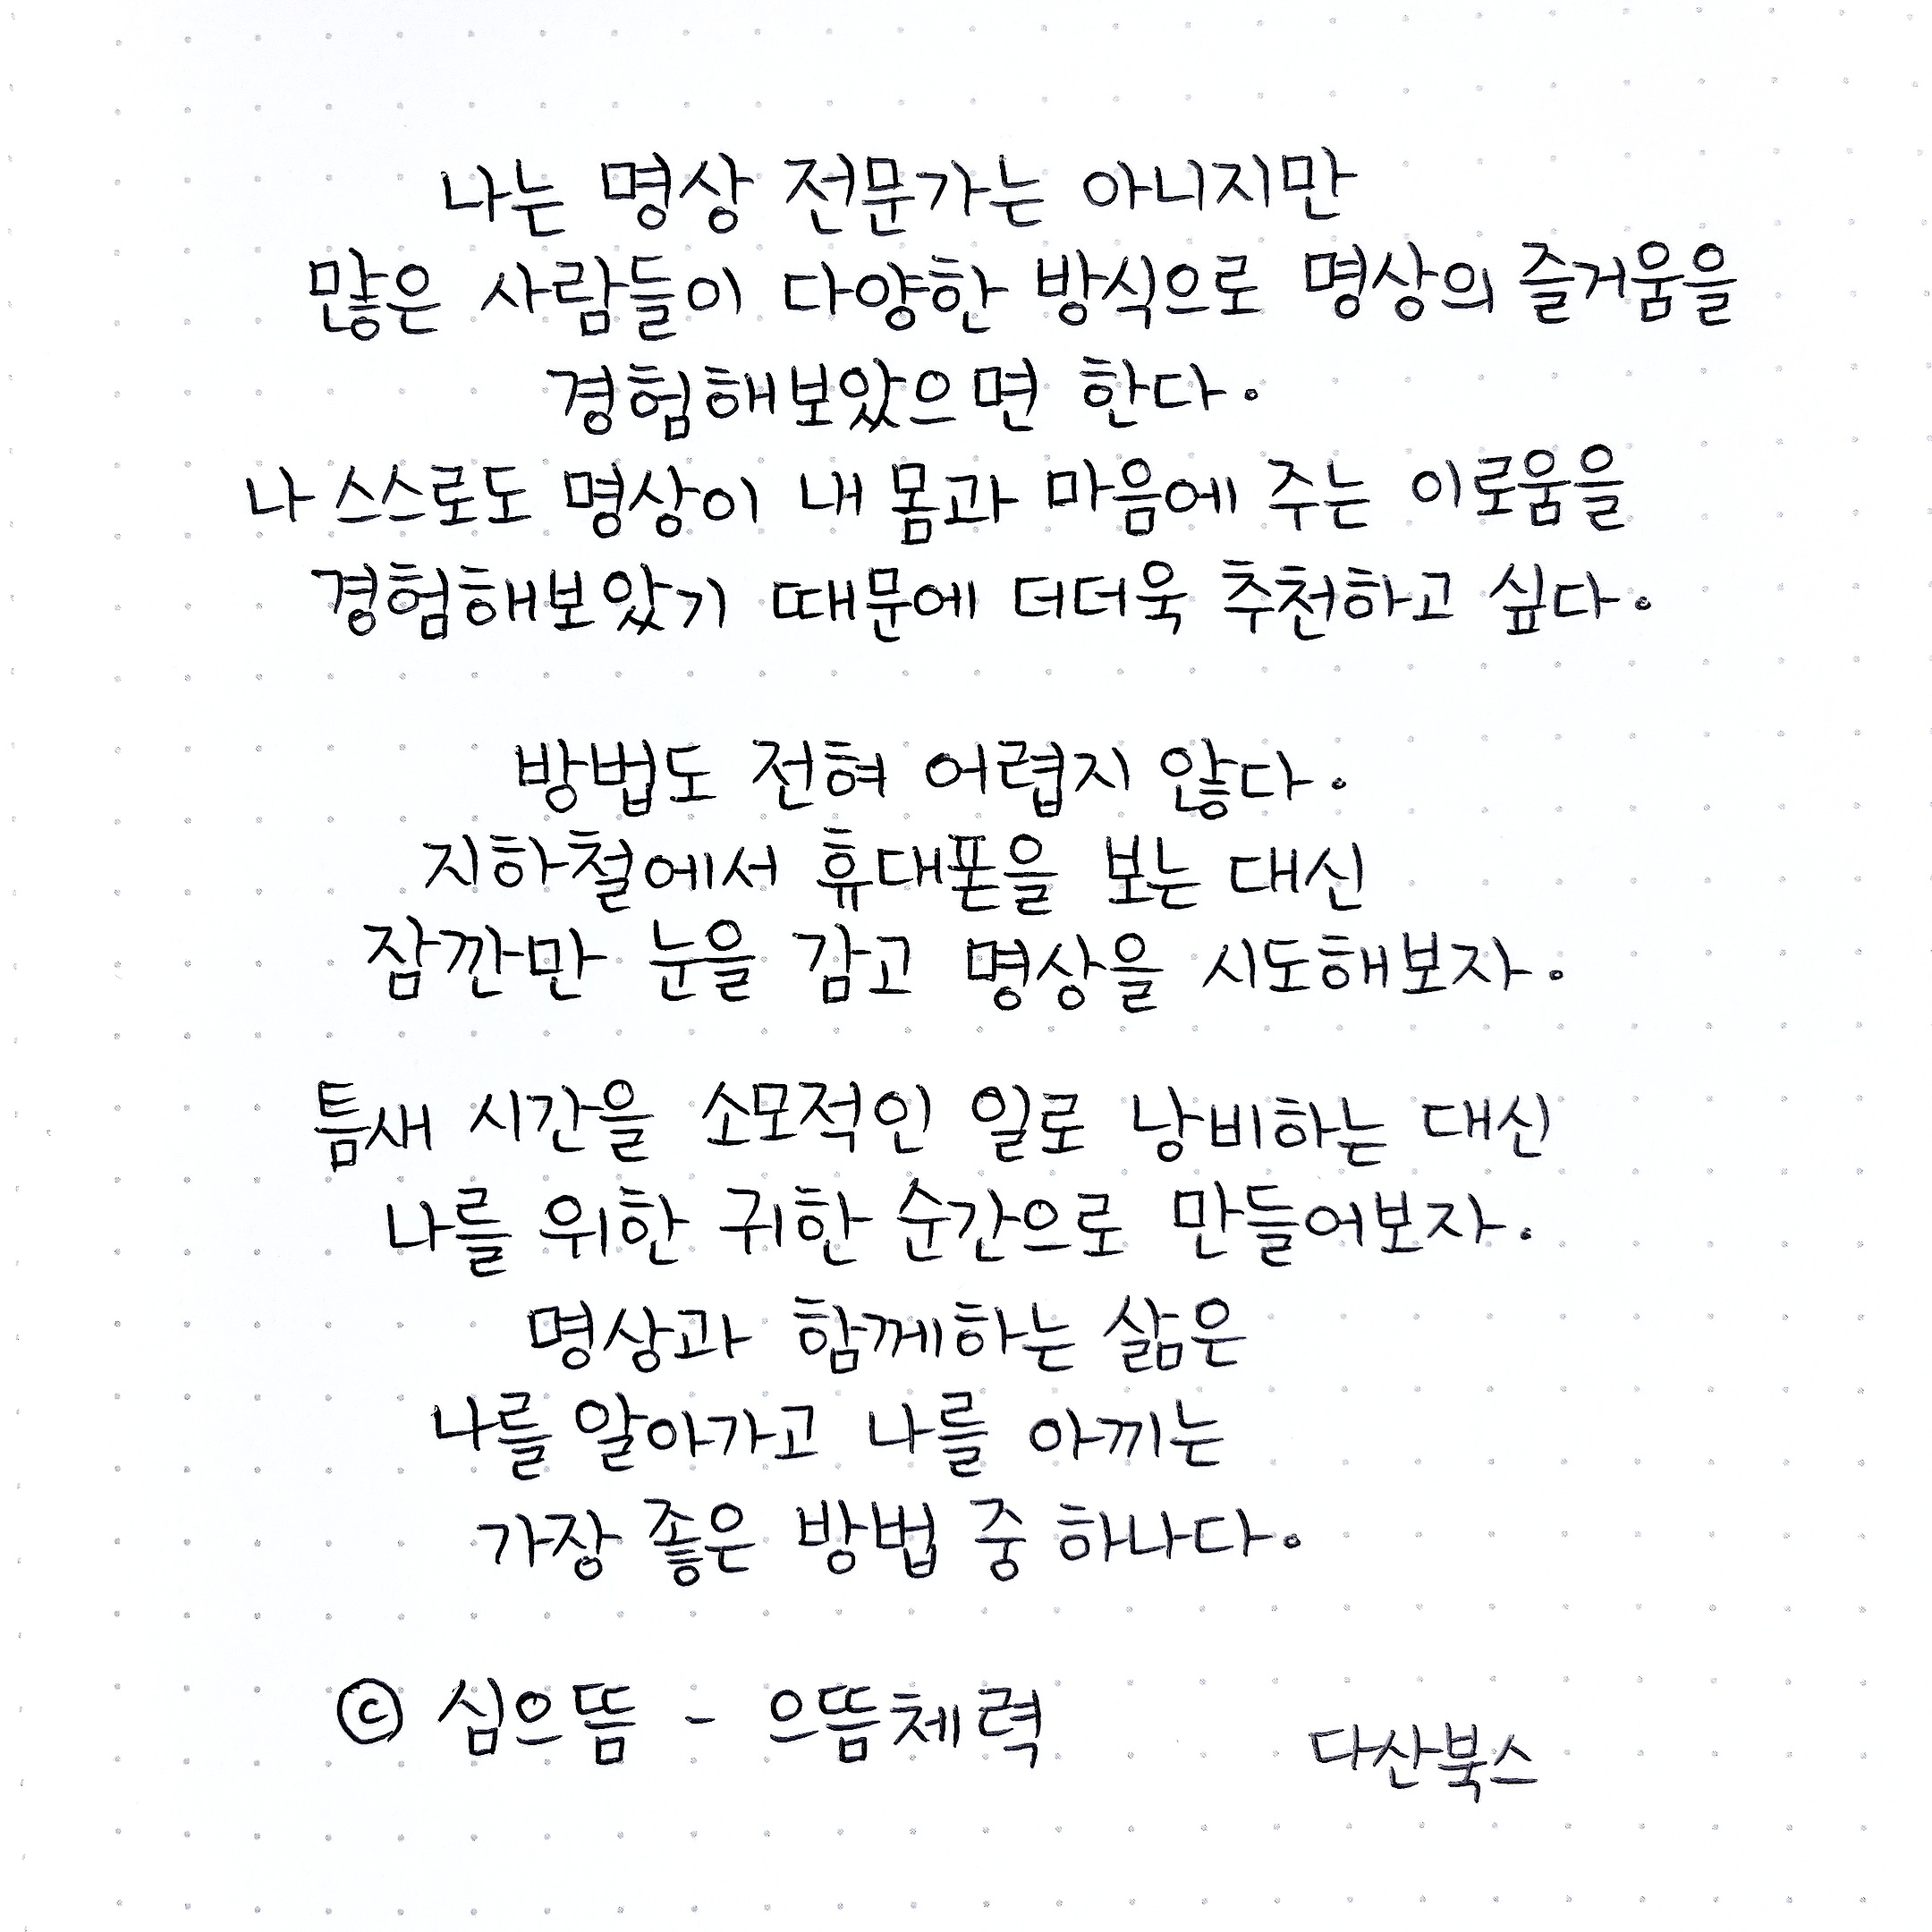 나는 명상 전문가는 아니지만
많은 사람들이 다양한 방식으로 명상의 즐거움을
경험해보았으면 한다.
나 스스로도 명상이 내 몸과 마음에 주는 이로움을
경험해보았기 때문에 더더욱 추천하고 싶다.
방법도 전혀 어렵지 않다.
지하철에서 휴대폰을 보는 대신
잠깐만 눈을 감고 명상을 시도해보자.
틈새 시간을 소모적인 일로 낭비하는 대신
나를 위한 귀한 순간으로 만들어보자.
명상과 함께하는 삶은
나를 알아가고 나를 아끼는
가장 좋은 방법 중 하나다.
© 심으뜸 - 으뜸체력
다산북스